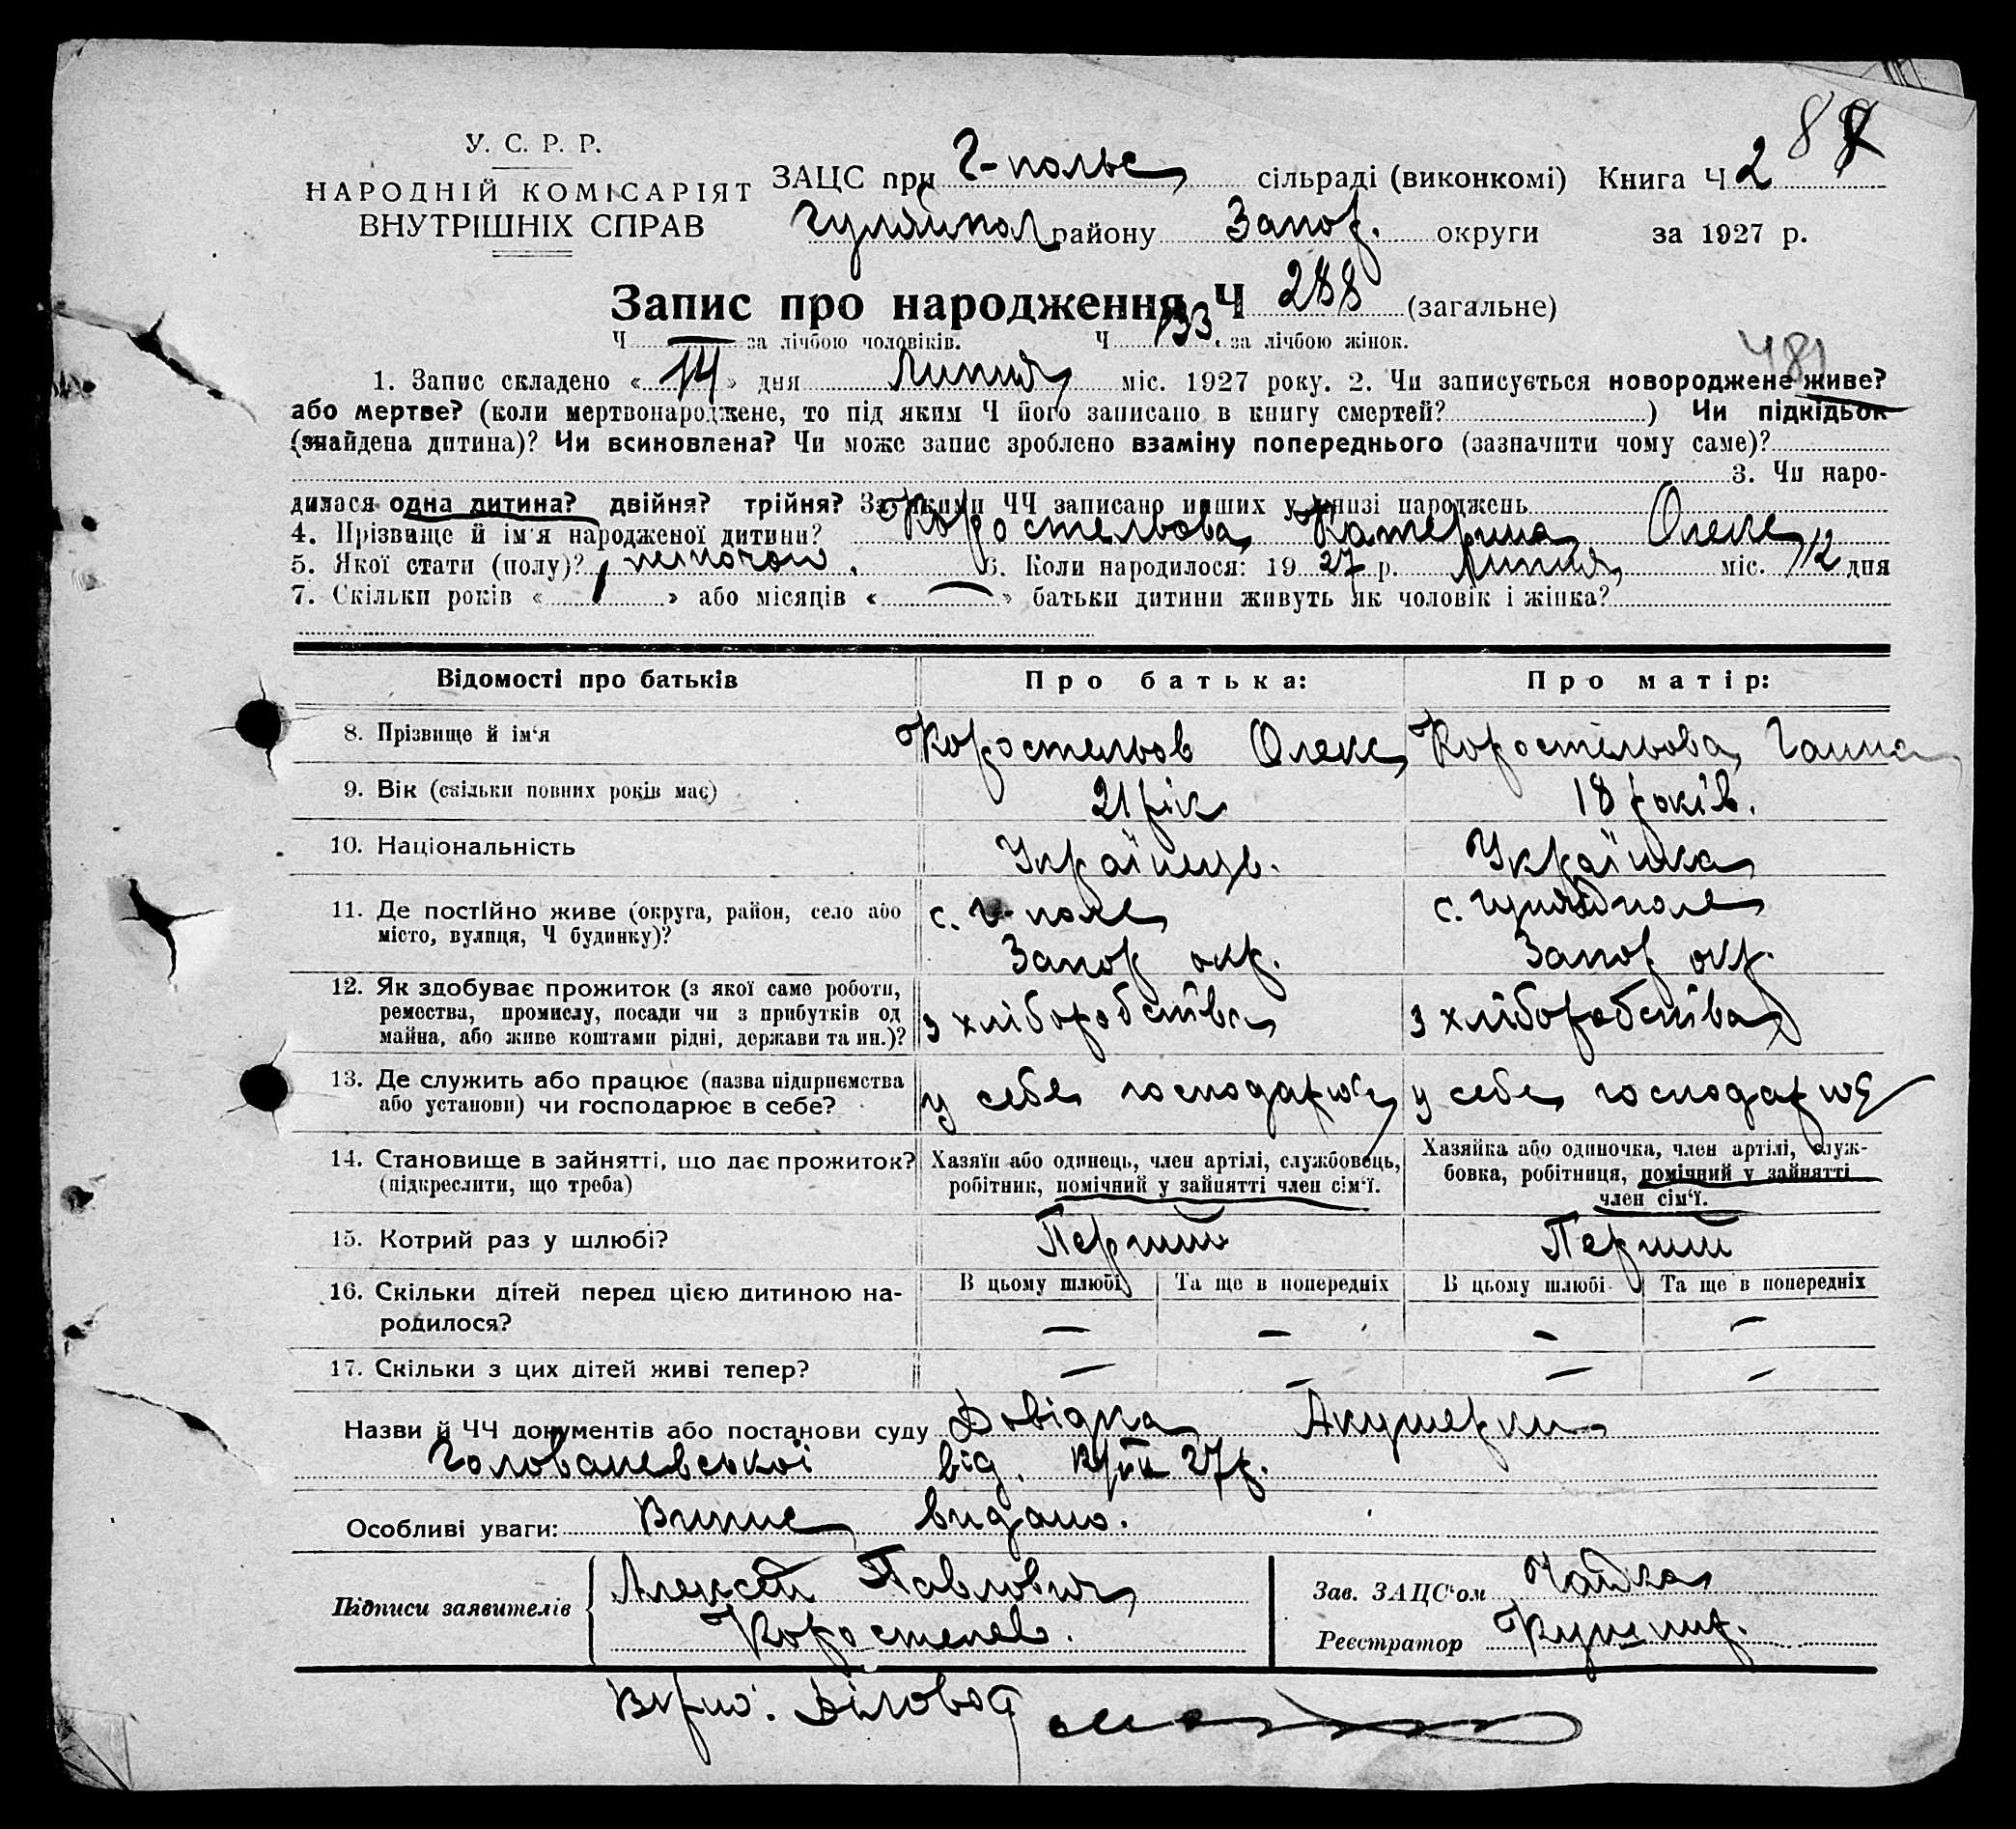 У. С. Р. Р.
НАРОДНІЙ КОМІСАРІЯТ
ВНУТРІШНІХ СПРАВ
ЗАЦС при Г-польс сільраді (виконкомі) Книга Ч 2
Гуляйпол району Запор. округи за 1927 р.
Запис про народження Ч 288 (загальне)
Ч — за лічбою чоловіків. Ч 133. за лічбою жінок.
1. Запис складено « 14 » дня Липня міс. 1927 року. 2. Чи записується новороджене живе?
або мертве? (коли мертвонароджене, то під яким Ч його записано в книгу смертей? ) Чи підкідьок
(знайдена дитина)? Чи всиновлена? Чи може запис зроблено взаміну попереднього (зазначити чому саме)?
3. Чи наро-
дилася одна дитина? двійня? трійня? За якими ЧЧ записано инших у книзі народжень
4. Прізвище й ім'я народженої дитини? Коростельова Катерина Олекс
5. Якої стати (полу)? жіночої. 6. Коли народилося: 19 27 р. Липня міс. 12 дня
7. Скільки років « 1 » або місяців « — » батьки дитини живуть як чоловік і жінка?
Відомості про батьків Про батька: Про матір:
8. Прізвище й ім'я Коростельов Олекс Коростельова Ганна
9. Вік (скільки повних років має) 21 рік 18 років.
10. Національність Українець. Українка
11. Де постійно живе (округа, район, село або с. Г-поле с. Гуляйполе
місто, вулиця, Ч будинку)? Запор окр. Запор окр.
12. Як здобуває прожиток (з якої само роботи,
ремества, промислу, посади чи з прибутків од з хліборобства з хліборобства
майна, або живе коштами рідні, держави та ин.)?
13. Де служить або працює (назва підприємства у себе господарює у себе господарює
або установи) чи господарює в себе?
14. Становище в зайнятті, що дає прожиток? Хазяїн або одинець, член артілі, службовець, Хазяйка або одиночка, член артілі, служ-
(підкреслити, що треба) робітник, помічний у зайнятті член сім'ї. бовка, робітниця, помічний у зайнятті
член сім'ї.
15. Котрий раз у шлюбі? Перший Перший
В цьому шлюбі Та ще в попередніх В цьому шлюбі Та ще в попередніх
16. Скільки дітей перед цією дитиною на-
родилося? — — — —
17. Скільки з цих дітей живі тепер? — — — —
Назви й ЧЧ документів або постанови суду Довідка Акушерки
Голованевської від. 12/VII 27р.
Особливі уваги: Випис видано.
Підписи заявителів Алексей Павлович
Коростелев.
Зав. ЗАЦС'ом Чайка
Реєстратор